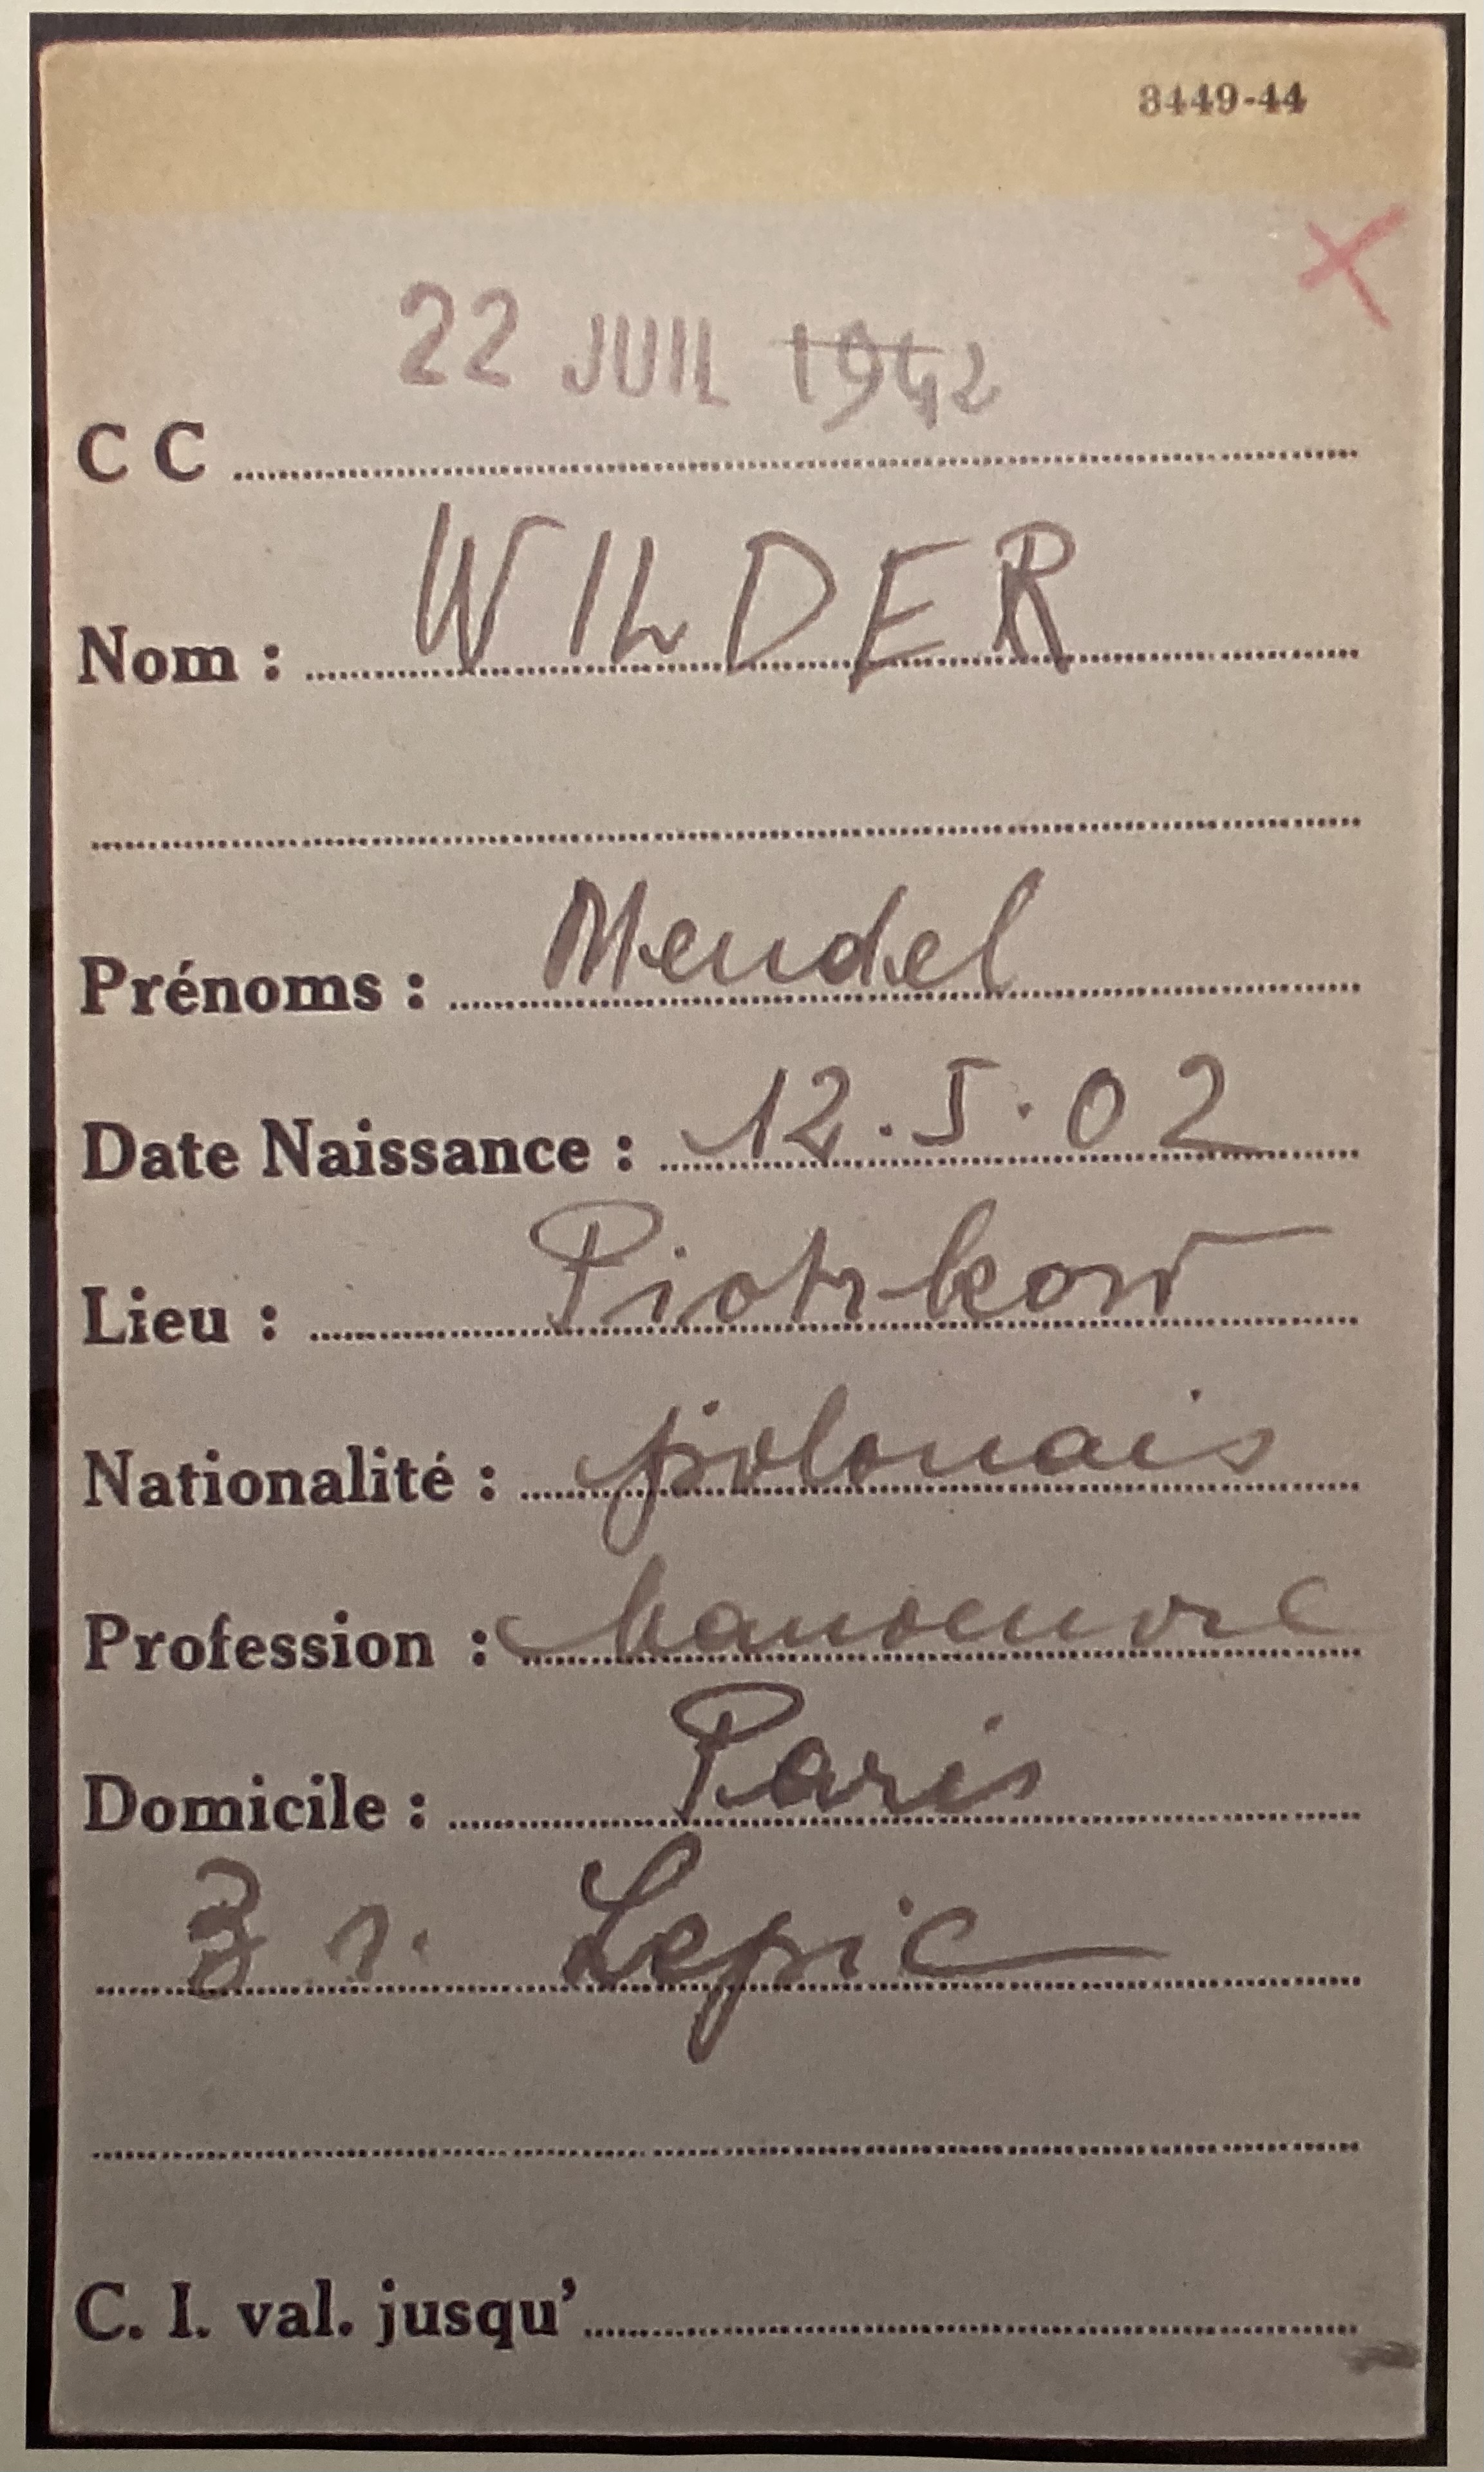 3449-44
22 JUIL 1942
C C
Nom : WILDER
Prénoms : Mendel
Date Naissance : 12.5.02
Lieu : Piotrkow
Nationalité : polonais
Profession : Manoeuvre
Domicile : Paris
3 r. Lepic
C. I. val. jusqu'